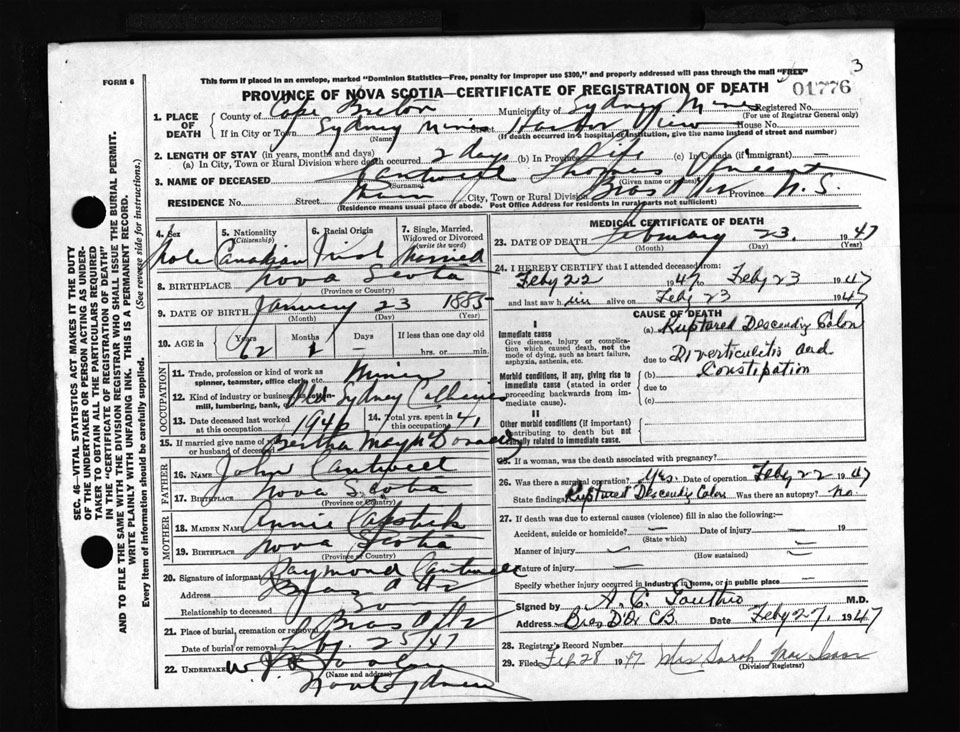 FORM 6
This form if placed in an envelope, marked "Dominion Statistics—Free, penalty for improper use $300," and properly addressed will pass through the mail "FREE"
3
PROVINCE OF NOVA SCOTIA—CERTIFICATE OF REGISTRATION OF DEATH
01776
1. PLACE OF DEATH
County of Cape Breton Municipality of Sydney Mines Registered No.
(For use of Registrar General only)
If in City or Town Sydney Mines Street Harbor View House No.
(Name) (If death occurred in a hospital or institution, give the name instead of street and number)
2. LENGTH OF STAY (in years, months and days)
(a) In City, Town or Rural Division where death occurred 2 days (b) In Province Life (c) In Canada (if immigrant) —
3. NAME OF DECEASED Cantwell Thomas Vincent
(Surname) (Given name or names)
RESIDENCE No. Street City, Town or Rural Division Bras d'Or Province N. S.
(Residence means usual place of abode. Post Office Address for residents in rural parts not sufficient)
4. Sex Male
5. Nationality (Citizenship) Canadian
6. Racial Origin Irish
7. Single, Married, Widowed or Divorced (write the word) Married
8. BIRTHPLACE Nova Scotia
(Province or Country)
9. DATE OF BIRTH January 23 1885
(Month) (Day) (Year)
10. AGE in Years 62 Months 1 Days — If less than one day old
hrs. or min.
OCCUPATION
11. Trade, profession or kind of work as spinner, teamster, office clerk, etc. Miner
12. Kind of industry or business, as cotton-mill, lumbering, bank, Old Sydney Collieries
13. Date deceased last worked at this occupation 1946
14. Total yrs. spent in this occupation 41
15. If married give name of husband or wife of deceased Bertha May
FATHER
16. NAME John Cantwell
17. BIRTHPLACE Nova Scotia
(Province or Country)
MOTHER
18. MAIDEN NAME Annie Capstick
19. BIRTHPLACE Nova Scotia
(Province or Country)
20. Signature of informant Raymond Cantwell
Address Bras d'Or
Relationship to deceased Son
21. Place of burial, cremation or removal Bras d'Or
Date of burial or removal Feby. 25/47
22. UNDERTAKER
(Name and address)
North Sydney
MEDICAL CERTIFICATE OF DEATH
23. DATE OF DEATH February 23. 1947
(Month) (Day) (Year)
24. I HEREBY CERTIFY that I attended deceased from:
Feby 22 1947 to Feby 23 1947
and last saw him alive on Feby 23 1947
CAUSE OF DEATH
I
Immediate cause
Give disease, injury or complication which caused death, not the mode of dying, such as heart failure, asphyxia, asthenia, etc.
(a) Ruptured Descendg Colon
due to Diverticulitis and
Morbid conditions, if any, giving rise to immediate cause (stated in order proceeding backwards from immediate cause).
(b) Constipation
due to
(c)
II
Other morbid conditions (if important) contributing to death but not causally related to immediate cause.
25. If a woman, was the death associated with pregnancy?
26. Was there a surgical operation? Yes. Date of operation Feby 22 1947
State findings Ruptured Descendg Colon Was there an autopsy? no
27. If death was due to external causes (violence) fill in also the following:
Accident, suicide or homicide? — Date of injury — 19
(State which)
Manner of injury — —
(How sustained)
Nature of injury —
Specify whether injury occurred in industry, in home, or in public place —
Signed by M.D.
Address Bras D'Or CB. Date Feby 27, 1947
28. Registrar's Record Number
29. Filed Feb 28 1947 Mrs Sarah MacIsaac
(Division Registrar)
SEC. 46—VITAL STATISTICS ACT MAKES IT THE DUTY
OF THE UNDERTAKER OR PERSON ACTING AS UNDER-
TAKER TO OBTAIN ALL THE PARTICULARS REQUIRED
IN THE "CERTIFICATE OF REGISTRATION OF DEATH"
AND TO FILE THE SAME WITH THE DIVISION REGISTRAR WHO SHALL ISSUE THE BURIAL PERMIT.
WRITE PLAINLY WITH UNFADING INK. THIS IS A PERMANENT RECORD.
Every item of information should be carefully supplied. (See reverse side for instructions.)